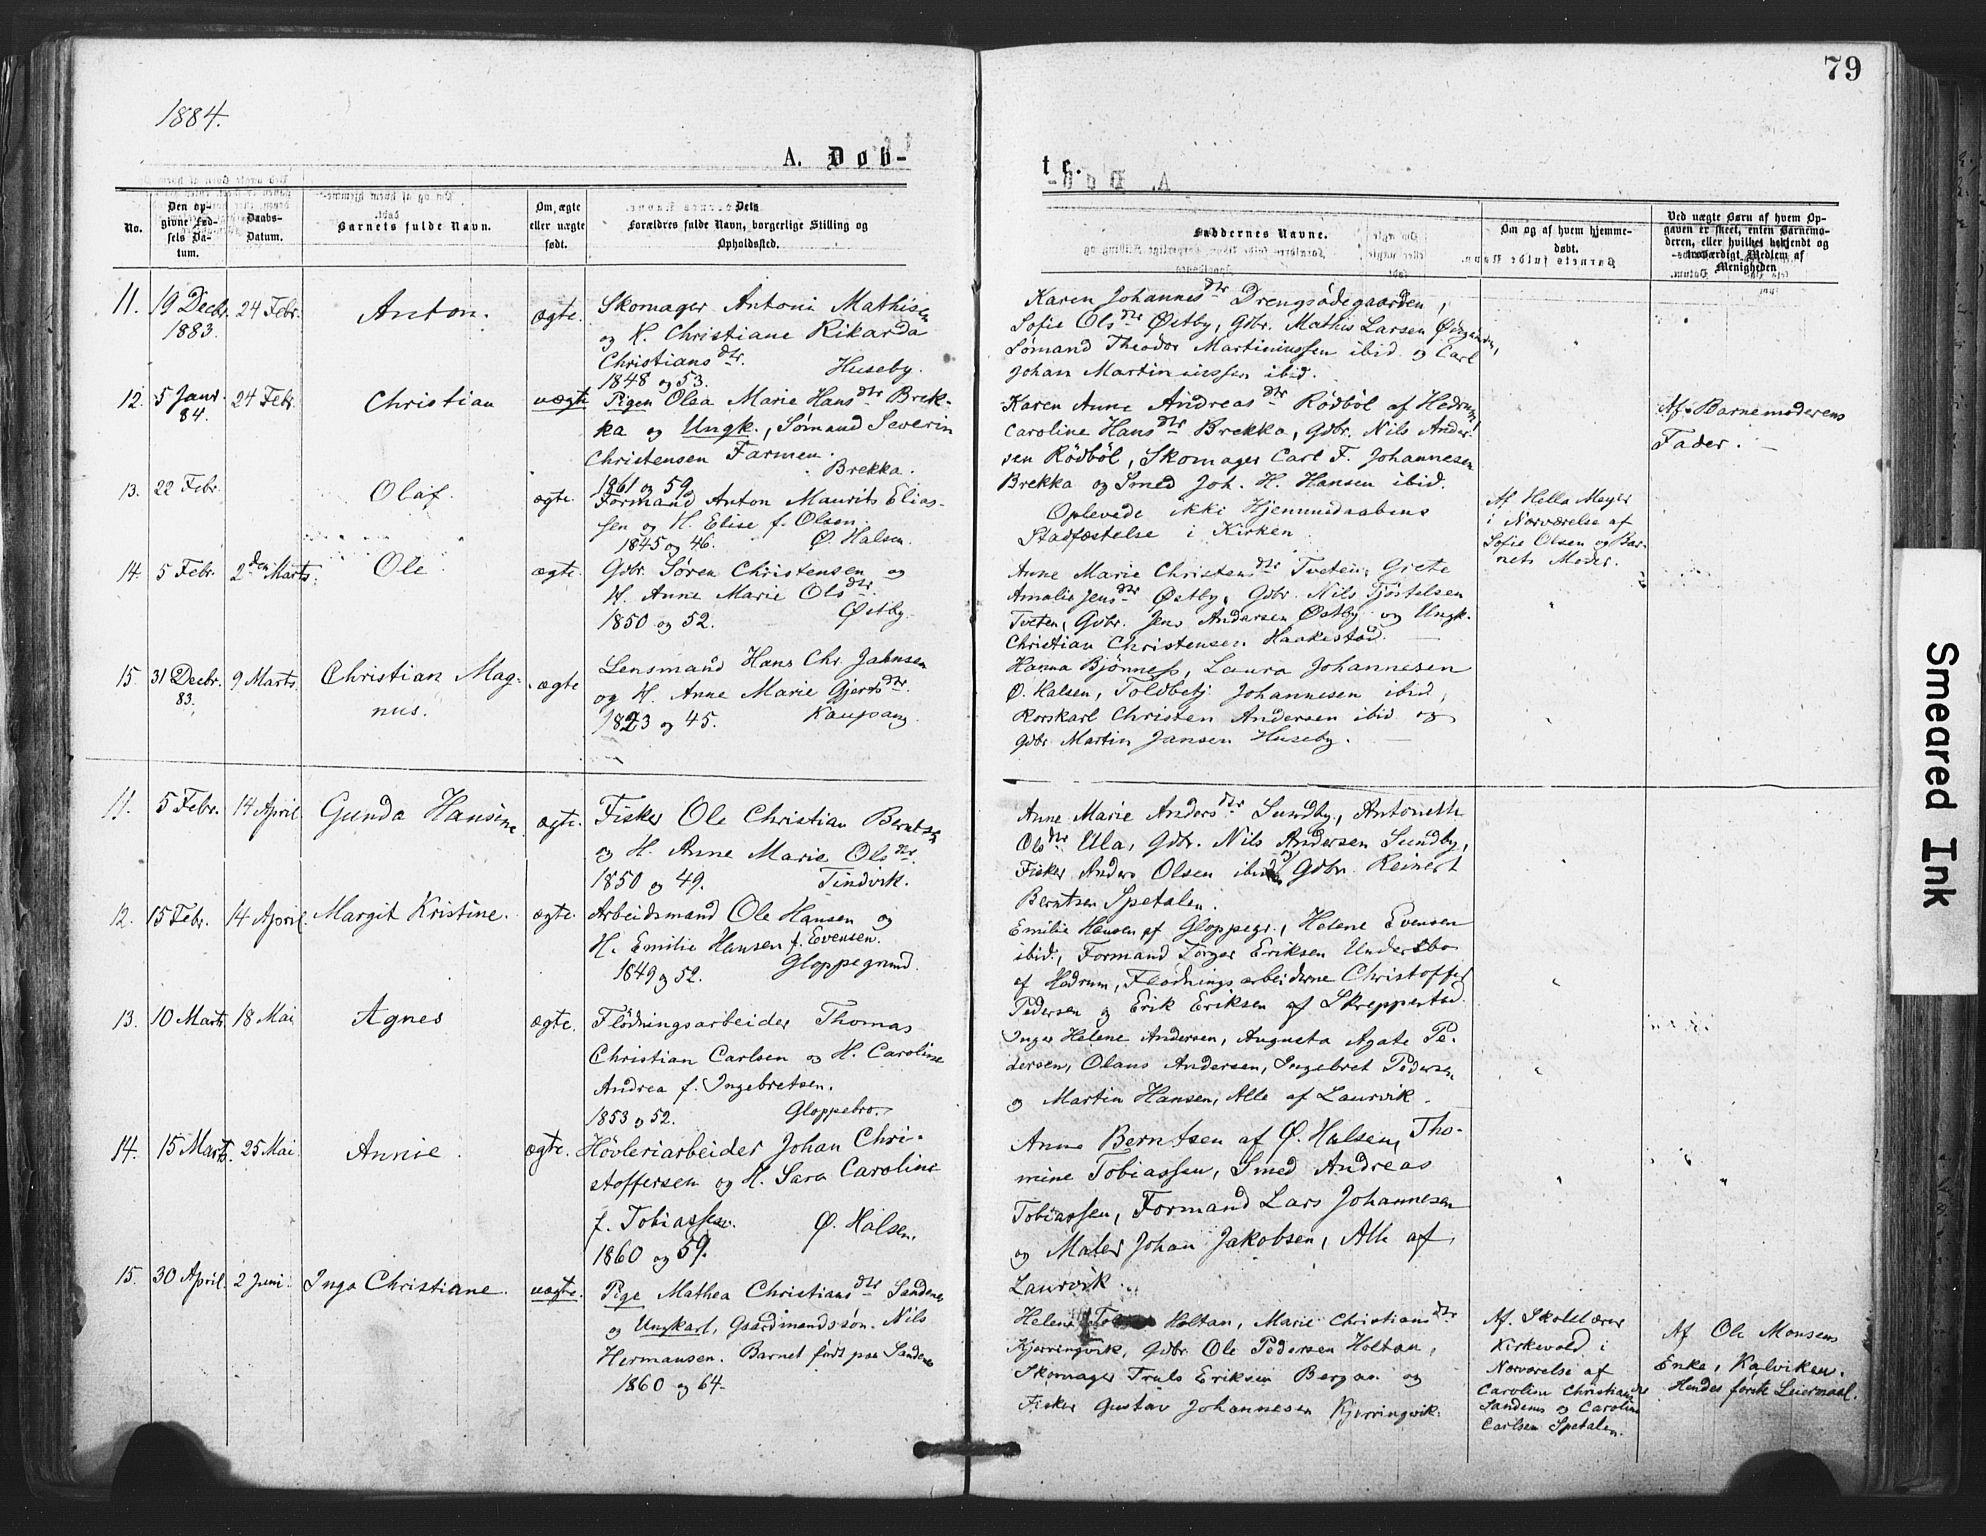 79
1884.
A. Døb-
te.
No.
Den op-
givne Fød-
sels Da-
tum.
Daabs-
Datum.
Barnets fulde Navn.
Om ægte
eller uægte
født.
Dets
Forældres fulde Navn, borgerlige Stilling og
Opholdssted.
Faddernes Navne.
Om og af hvem hjemme-
døbt.
Ved uægte Børn af hvem Op-
gaven er skeet, enten Barnemo-
deren, eller hvilket bekjendt og
troværdigt Medlem af
Menigheden
11. 19 Decbr. 1883. 24 Febr. Anton. ægte.
Skomager Anton Mathisen
og H. Christiane Rikarda
Christiansdtr. Huseby.
1848 og 53.
Karen Johannesdtr Drengsødegaarden,
Sofie Olsdtr Østby, Gdbr. Mathis Larsen Ødegaarden,
Sømand Theodor Martiniussen ibid og Carl
Johan Martiniussen ibid.
12. 5 Janr. 84. 24 Febr. Christian uægte
Pigen Olea Marie Hansdtr Brek-
ka og Ungk., Sømand Severin
Christensen Farmen.
Brekka.
1861 og 59.
Karen Anne Andreasdtr Rødbøl af Hedrum,
Caroline Hansdtr Brekka, Gdbr. Nils Ander-
sen Rødbøl, Skomager Carl F. Johannesen
Brekka og Smed Joh. H. Hansen ibid.
Af Barnemoderens
Fader.
13. 22 Febr. Olaf. ægte.
Formand Anton Maurits Elias-
sen og H. Elise f. Olsen.
1845 og 46. Ø. Halsen.
Oplevede ikke Hjemmedaabens
Stadfæstelse i Kirken.
Af Hella Meyer
i Nærværelse af
Sofie Olsen og Bar-
nets Moder.
14. 5 Febr. 2den Marts. Ole. ægte.
Gdbr. Søren Christensen og
H. Anne Marie Olsdtr.
1850 og 52. Østby.
Anne Marie Christensdtr Tveten, Grete
Amalie Jensdtr Østby, Gdbr. Nils Tjøstelsen
Tveten, Gdbr. Jens Andersen Østby og Ungk.
Christian Christensen Haakestad.
15. 31 Decbr. 83. 9 Marts. Christian Mag-
nus. ægte
Lensmand Hans Chr. Jahnsen
og H. Anne Marie Gjertsdtr.
1823 og 45. Kaupang.
Hanna Bjønness, Laura Johannesen
Ø. Halsen, Toldbetj. Johannesen ibid,
Rorskarl Christen Andersen ibid og
Gdbr. Martin Jansen Huseby.
11. 5 Febr. 14 April. Gunda Hansine. ægte.
Fisker Ole Christian Berntsen
og H. Anne Marie Olsdtr.
1850 og 49. Tindvik.
Anne Marie Andersdtr Sundby, Antonette
Olsdtr Ula, Gdbr. Nils Andersen Sundby,
Fisker Anders Olsen ibid og Gdbr. Reinert
Berntsen Spetalen.
12. 15 Febr. 14 April. Margit Kristine. ægte.
Arbeidsmand Ole Hansen og
H. Emilie Hansen f. Evensen.
1849 og 52. Gloppegrund.
Emilie Hansen af Gloppegr., Helene Evensen
ibid, Formand Torger Eriksen Undersbo
af Hedrum, Flødningsarbeiderne Christoffer
Pedersen og Erik Eriksen af Skreppestad.
13. 10 Marts. 18 Mai Agnes ægte.
Flødningsarbeider Thomas
Christian Carlsen og H. Caroline
Andrea f. Ingebretsen.
1853 og 52. Gloppebro.
Inger Helene Andersen, Augusta Agate Pe-
dersen, Olaus Andersen, Ingebret Pedersen
og Martin Hansen, Alle af Laurvik.
14. 15 Marts. 25 Mai Annie. ægte.
Høvleriarbeider Johan Chri-
stoffersen og H. Sara Caroline
f. Tobiassen. Ø. Halsen.
1860 og 59.
Anne Berntsen af Ø. Halsen, Tho-
mine Tobiassen, Smed Andreas
Tobiassen, Formand Lars Johannesen
og Maler Johan Jakobsen, Alle af
Laurvik.
15. 30 April. 2 Juni. Inga Christiane. uægte.
Pige Mathea Christiansdtr Sandenes
og Ungkarl, Gaardmandssøn Nils
Hermansen. Barnet født paa Sandenes
1860 og 64.
Helene Holtan, Marie Christiansdtr
Kjerringvik, Gdbr. Ole Pedersen Holtan,
Skomager Truls Eriksen Bergan og
Fisker Gustav Johannesen Kjerringvik.
Af Skolelærer
Kirkevold i
Nærværelse af
Caroline Christiansdtr
Sandenes og Caroline
Carlsen Spetalen.
Af Ole Monsens
Enke, Kalviken.
Hendes første Leiermaal.
Smeared Ink